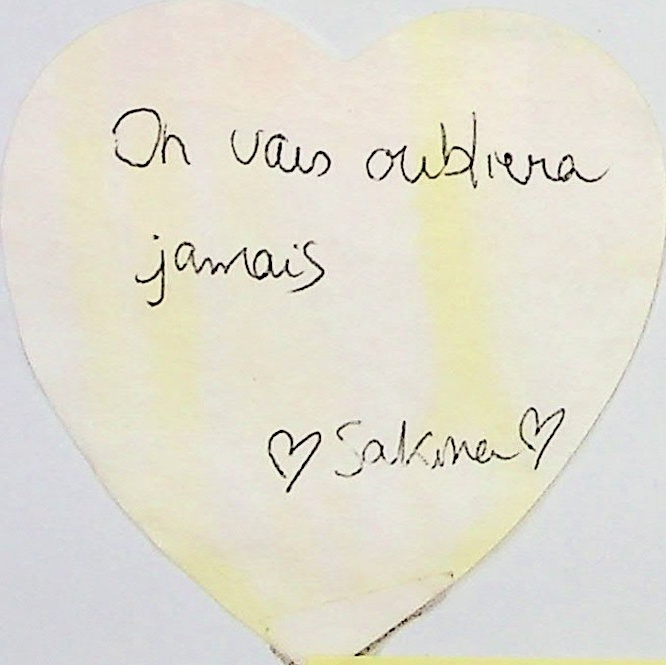 On vous oubliera
jamais
♡ Sakina ♡